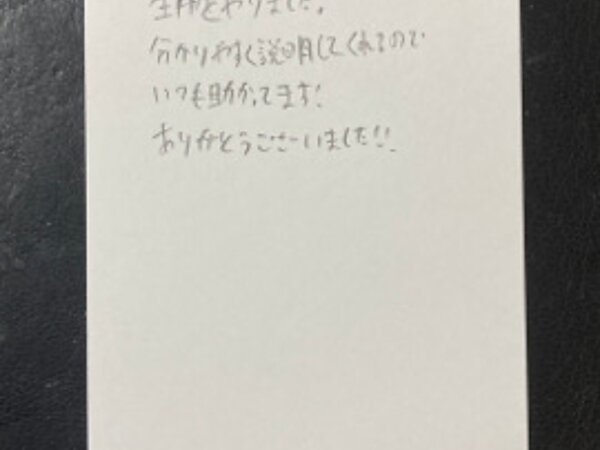 をやりました。
分かりやすく説明してくれるので
いつも助かってます!
ありがとうございました!!